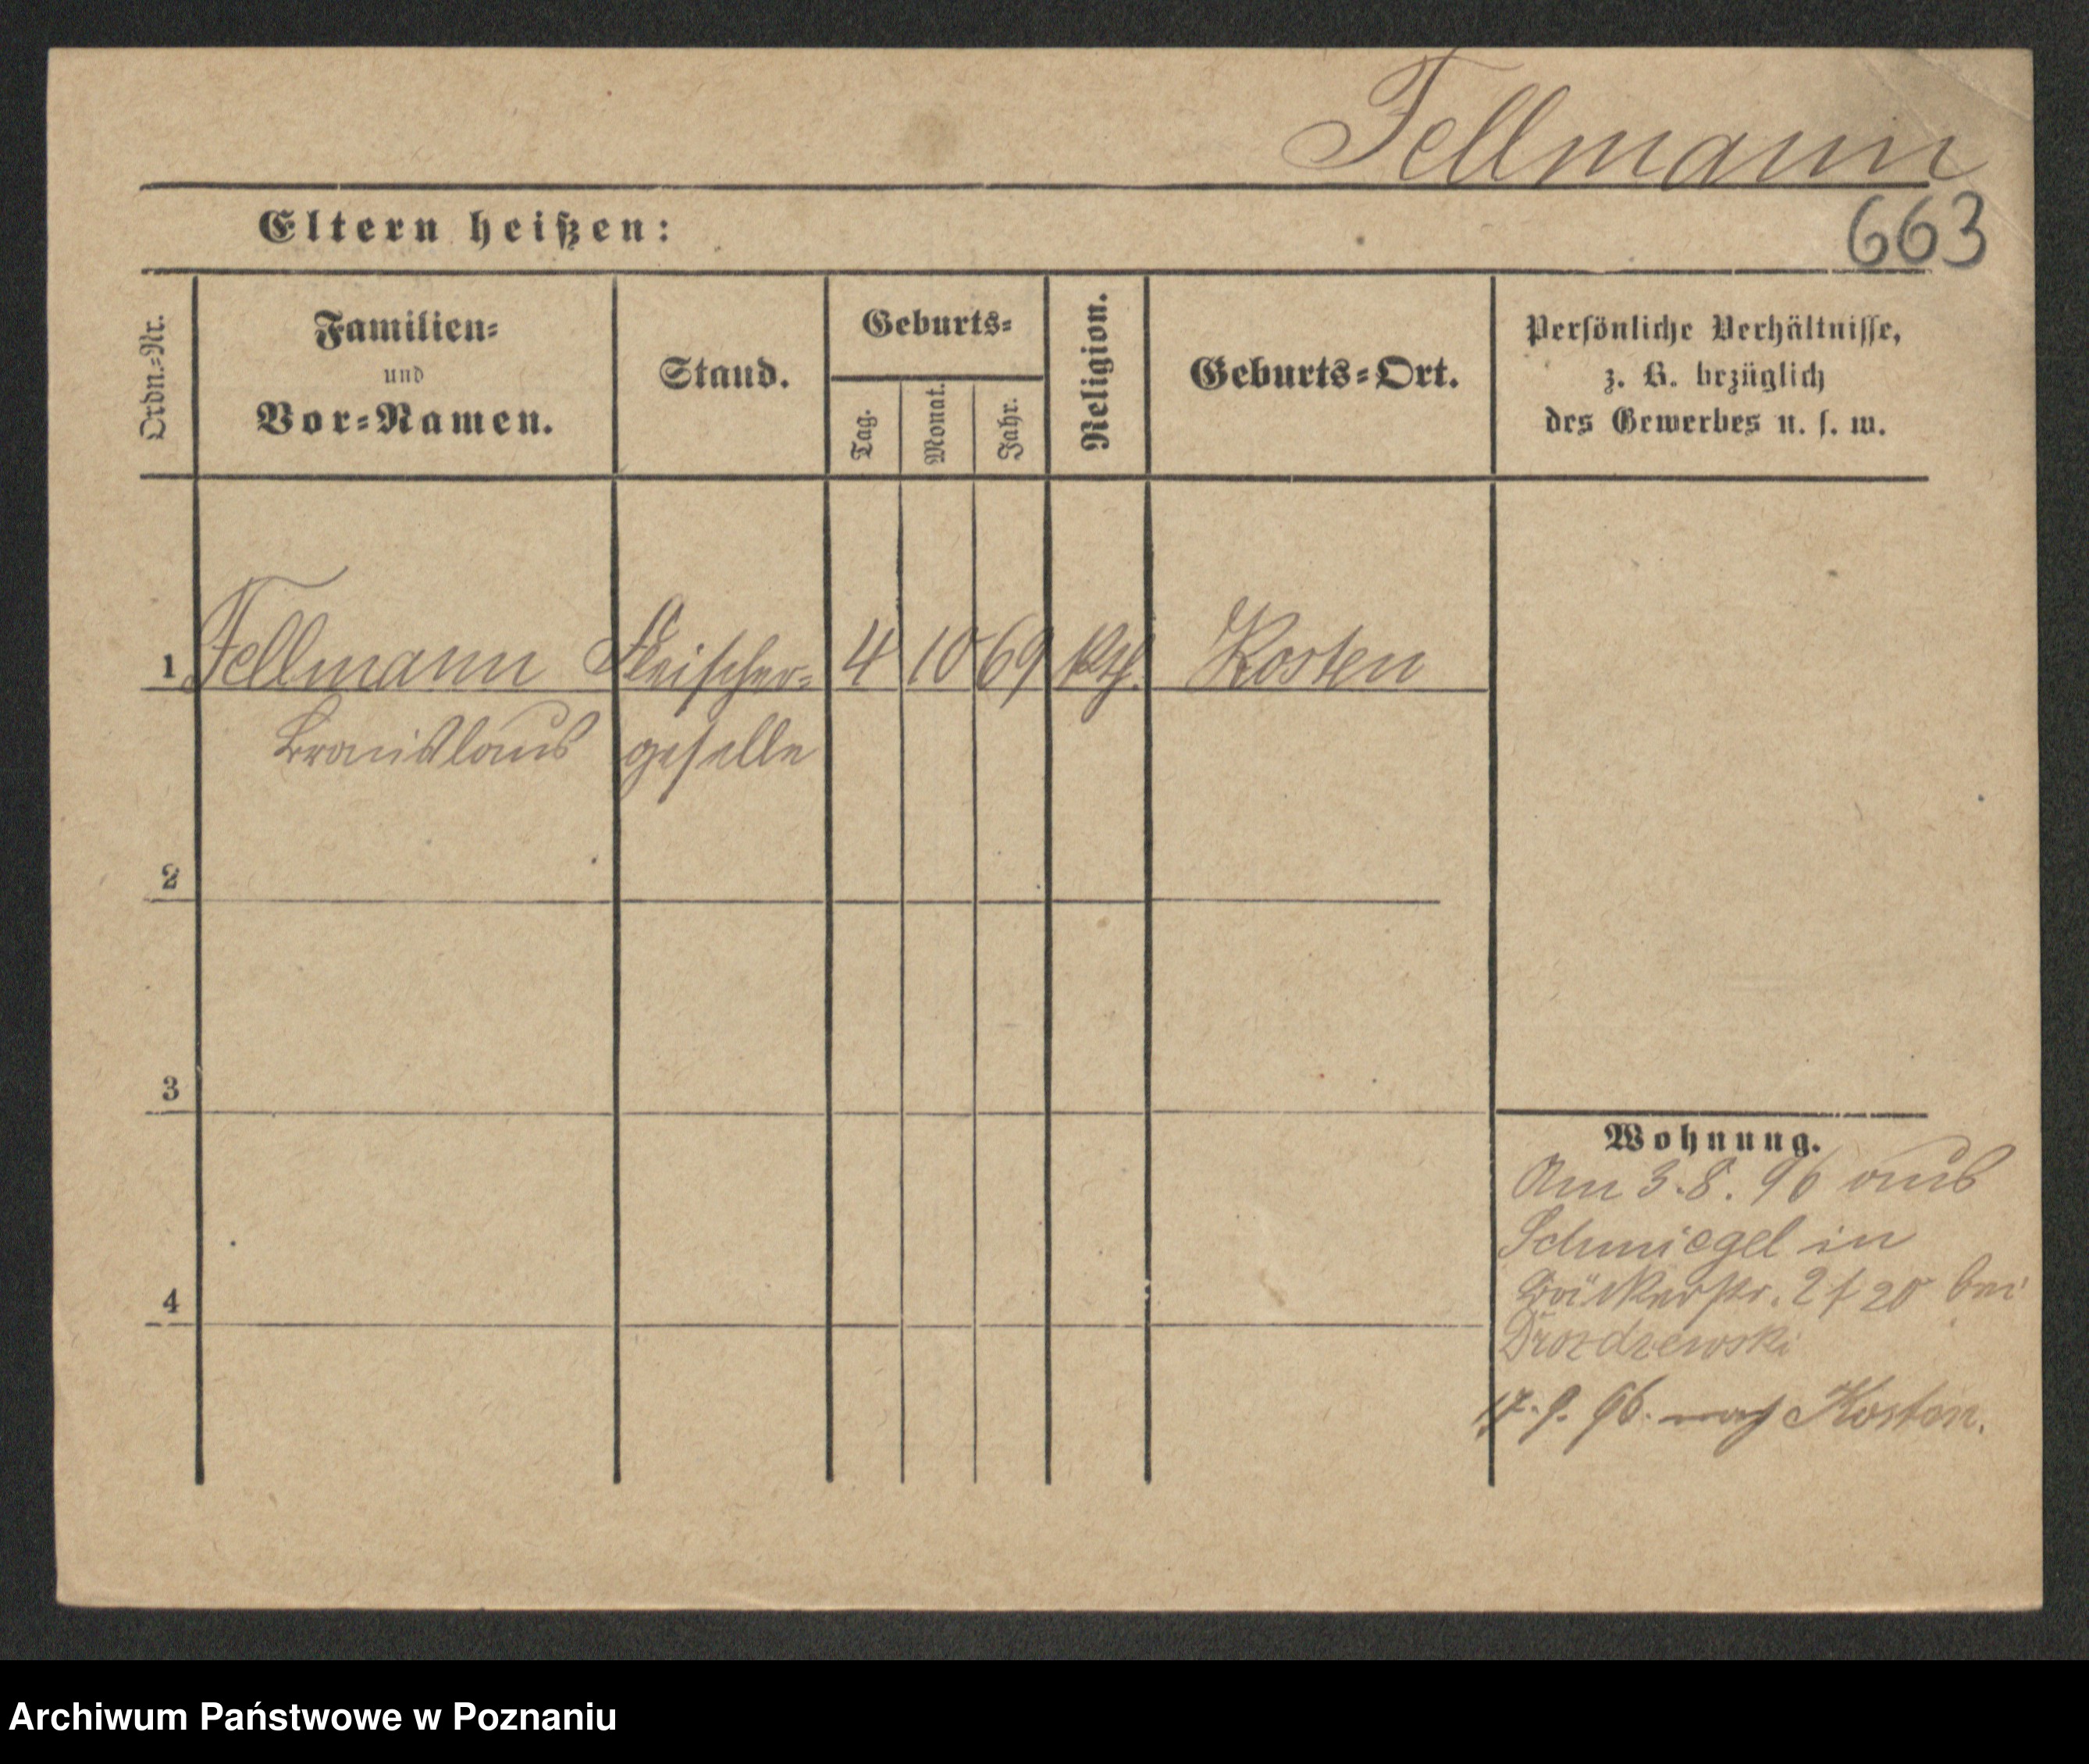 Fellmann
663
Eltern heißen:
Ordn.=Nr.
Familien=
und
Vor=Namen.
Stand.
Geburts=
Tag.
Monat.
Jahr.
Religion.
Geburts=Ort.
Persönliche Verhältnisse,
z. B. bezüglich
des Gewerbes u. s. w.
1 Fellmann Fleischer= 4 10 69 kth. Kosten
Bronislaus geselle
2
3
4
Wohnung.
Am 3.8.96 aus
Schmiegel in
Bäckerstr. 2 f 20 bei
Drozdzewski
17.9.96. nach Kosten.
Archiwum Państwowe w Poznaniu